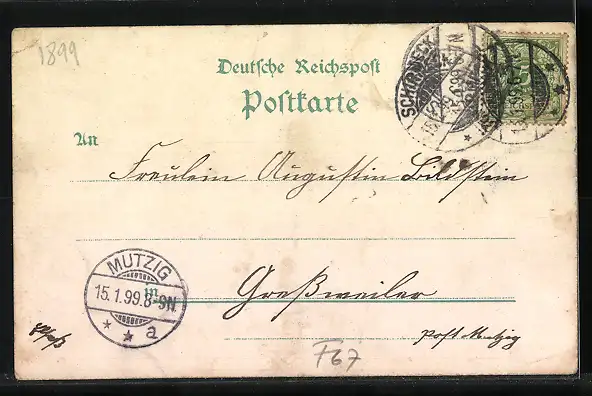 1899
Deutsche Reichspost
Postkarte
SCHIRMECK
An
Freulein Augustin Bildstein
MUTZIG
15.1.99.8-9N.
* * a
in
Greßweiler
Post Mutzig
F67